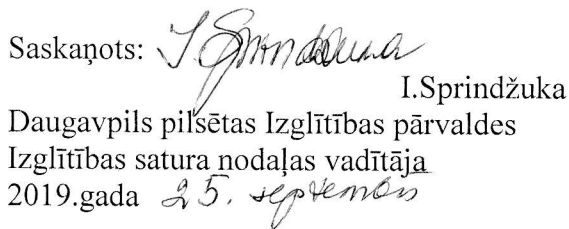 Saskaņots: I.Sprindžuka
I.Sprindžuka
Daugavpils pilsētas Izglītības pārvaldes
Izglītības satura nodaļas vadītāja
2019.gada 25. septembris